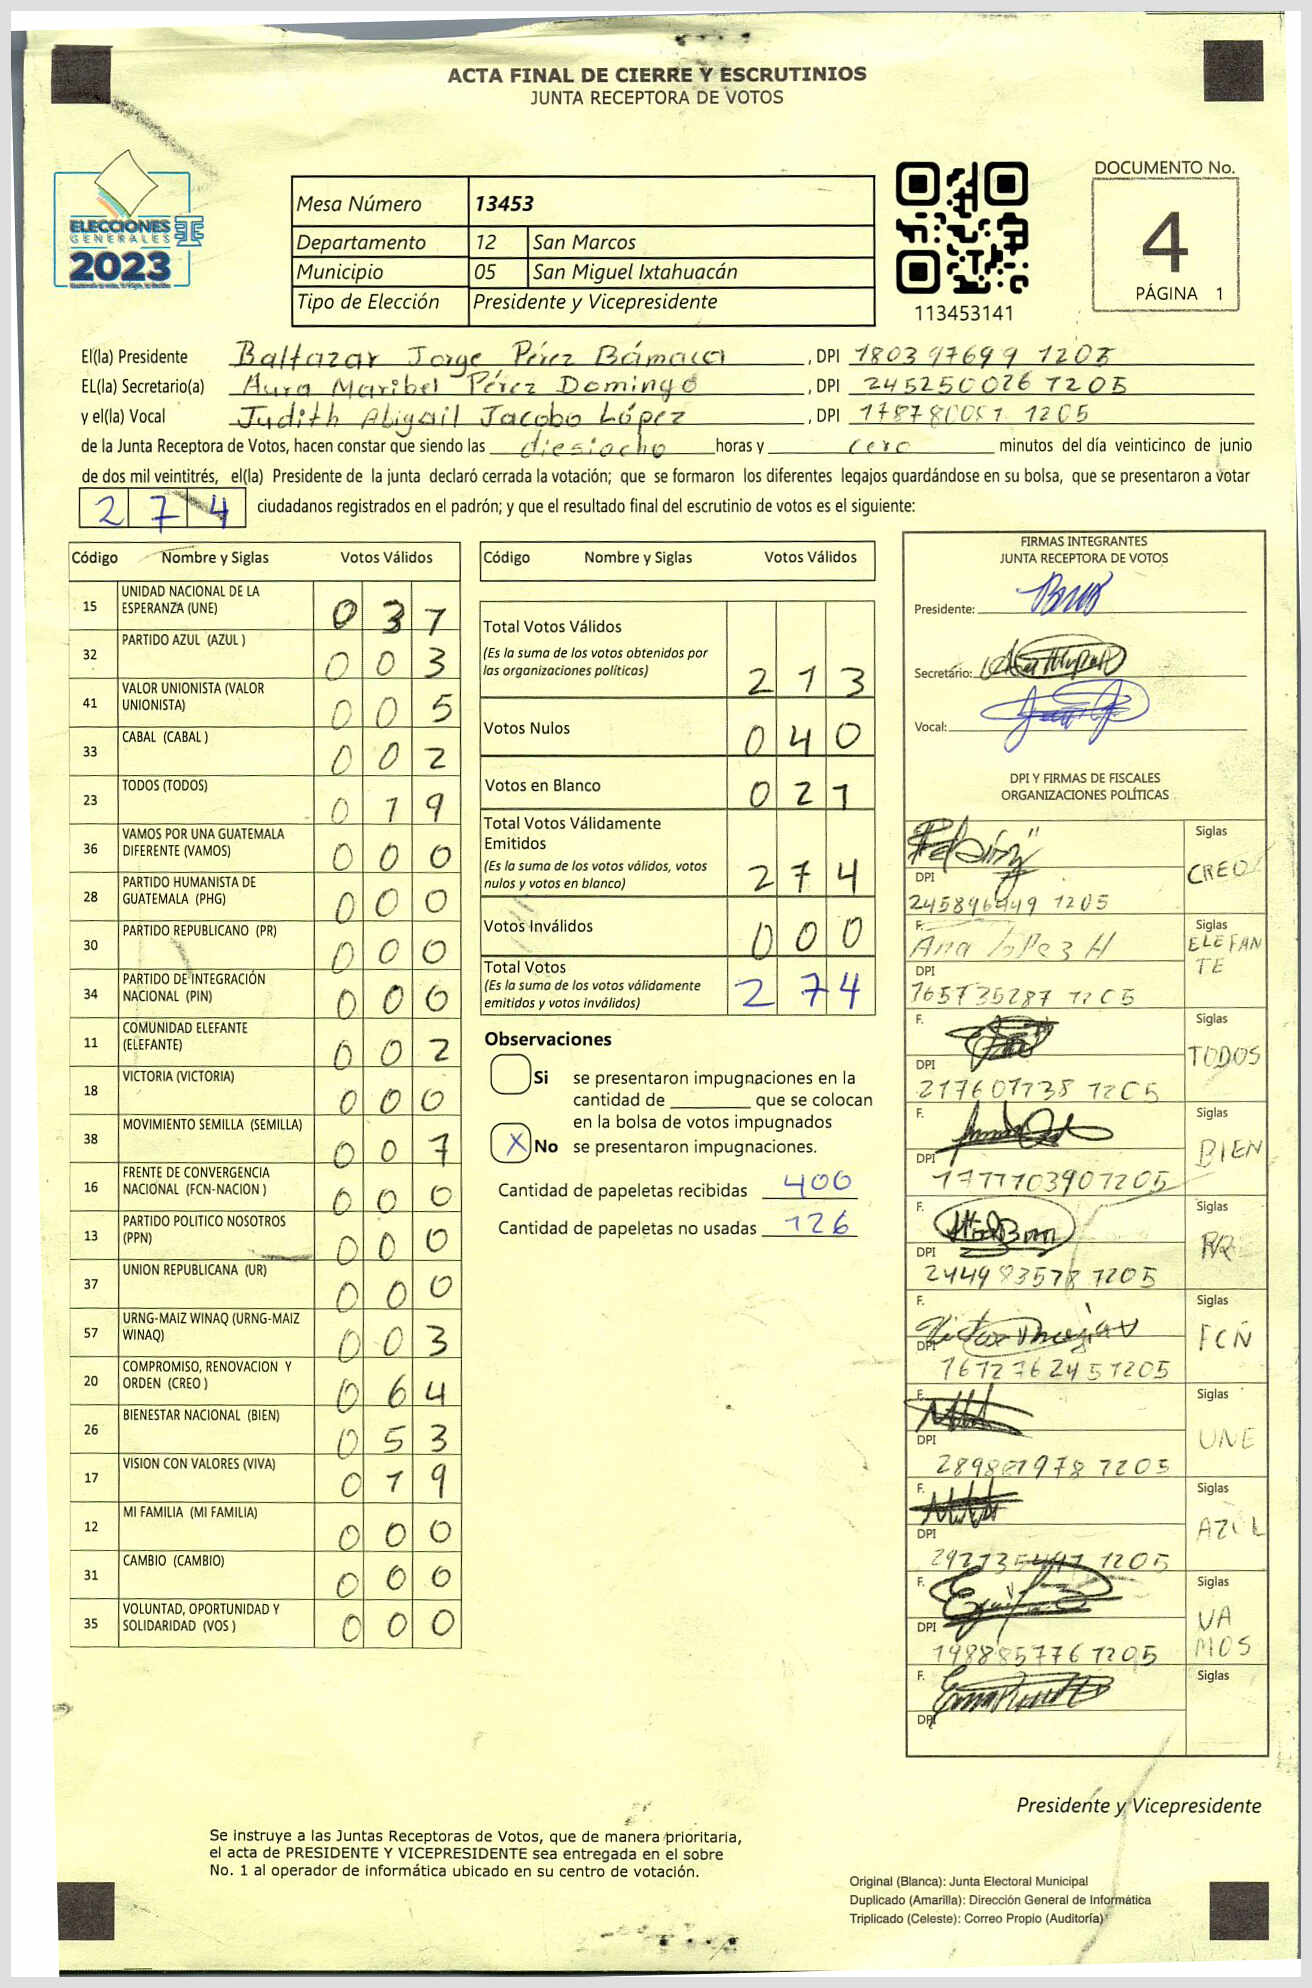 ACTA FINAL DE CIERRE Y ESCRUTINIOS
JUNTA RECEPTORA DE VOTOS
ELECCIONES
GENERALES
2023
Mesa Número 13453
Departamento 12 San Marcos
Municipio 05 San Miguel Ixtahuacán
Tipo de Elección Presidente y Vicepresidente
113453141
DOCUMENTO No.
4
PÁGINA 1
El(la) Presidente Baltazar Jorge Pérez Bámaca, DPI
EL(la) Secretario(a) Aura Maribel Pérez Domingo, DPI 245250026 1205
y el(la) Vocal Judith Abigail Jacobo López, DPI 178780051 1205
de la Junta Receptora de Votos, hacen constar que siendo las diesiocho horas y cero minutos del día veinticinco de junio
de dos mil veintitrés, el(la) Presidente de la junta declaró cerrada la votación; que se formaron los diferentes legajos guardándose en su bolsa, que se presentaron a votar
274 ciudadanos registrados en el padrón; y que el resultado final del escrutinio de votos es el siguiente:
Código Nombre y Siglas Votos Válidos
15 UNIDAD NACIONAL DE LA ESPERANZA (UNE) 037
32 PARTIDO AZUL (AZUL ) 003
41 VALOR UNIONISTA (VALOR UNIONISTA) 005
33 CABAL (CABAL ) 002
23 TODOS (TODOS) 019
36 VAMOS POR UNA GUATEMALA DIFERENTE (VAMOS) 000
28 PARTIDO HUMANISTA DE GUATEMALA (PHG) 000
30 PARTIDO REPUBLICANO (PR) 000
34 PARTIDO DE INTEGRACIÓN NACIONAL (PIN) 000
11 COMUNIDAD ELEFANTE (ELEFANTE) 002
18 VICTORIA (VICTORIA) 000
38 MOVIMIENTO SEMILLA (SEMILLA) 007
16 FRENTE DE CONVERGENCIA NACIONAL (FCN-NACION ) 000
13 PARTIDO POLITICO NOSOTROS (PPN) 000
37 UNION REPUBLICANA (UR) 000
57 URNG-MAIZ WINAQ (URNG-MAIZ WINAQ) 003
20 COMPROMISO, RENOVACION Y ORDEN (CREO ) 064
26 BIENESTAR NACIONAL (BIEN) 053
17 VISION CON VALORES (VIVA) 019
12 MI FAMILIA (MI FAMILIA) 000
31 CAMBIO (CAMBIO) 000
35 VOLUNTAD, OPORTUNIDAD Y SOLIDARIDAD (VOS ) 000
Código Nombre y Siglas Votos Válidos
Total Votos Válidos
(Es la suma de los votos obtenidos por
las organizaciones políticas) 213
Votos Nulos 040
Votos en Blanco 021
Total Votos Válidamente
Emitidos
(Es la suma de los votos válidos, votos
nulos y votos en blanco) 274
Votos Inválidos 000
Total Votos
(Es la suma de los votos válidamente
emitidos y votos inválidos) 274
Observaciones
Si se presentaron impugnaciones en la
cantidad de ________ que se colocan
en la bolsa de votos impugnados
X No se presentaron impugnaciones.
Cantidad de papeletas recibidas 400
Cantidad de papeletas no usadas 126
FIRMAS INTEGRANTES
JUNTA RECEPTORA DE VOTOS
Presidente:
Secretario:
Vocal:
DPI Y FIRMAS DE FISCALES
ORGANIZACIONES POLÍTICAS
Siglas CREO
DPI
245896449 1205
F. Ana López H Siglas ELEFANTE
DPI
1205
F. Siglas TODOS
DPI
217601738 1205
F. Siglas BIEN
DPI
1205
F. Siglas
DPI
244983578 1205
F. Siglas FCN
DPI
161276245 1205
F. Siglas UNE
DPI
1205
F. Siglas AZUL
DPI
1205
F. Siglas VAMOS
DPI
198885776 1205
F. Siglas
DPI
Presidente y Vicepresidente
Se instruye a las Juntas Receptoras de Votos, que de manera prioritaria,
el acta de PRESIDENTE Y VICEPRESIDENTE sea entregada en el sobre
No. 1 al operador de informática ubicado en su centro de votación.
Original (Blanca): Junta Electoral Municipal
Duplicado (Amarilla): Dirección General de Informática
Triplicado (Celeste): Correo Propio (Auditoría)